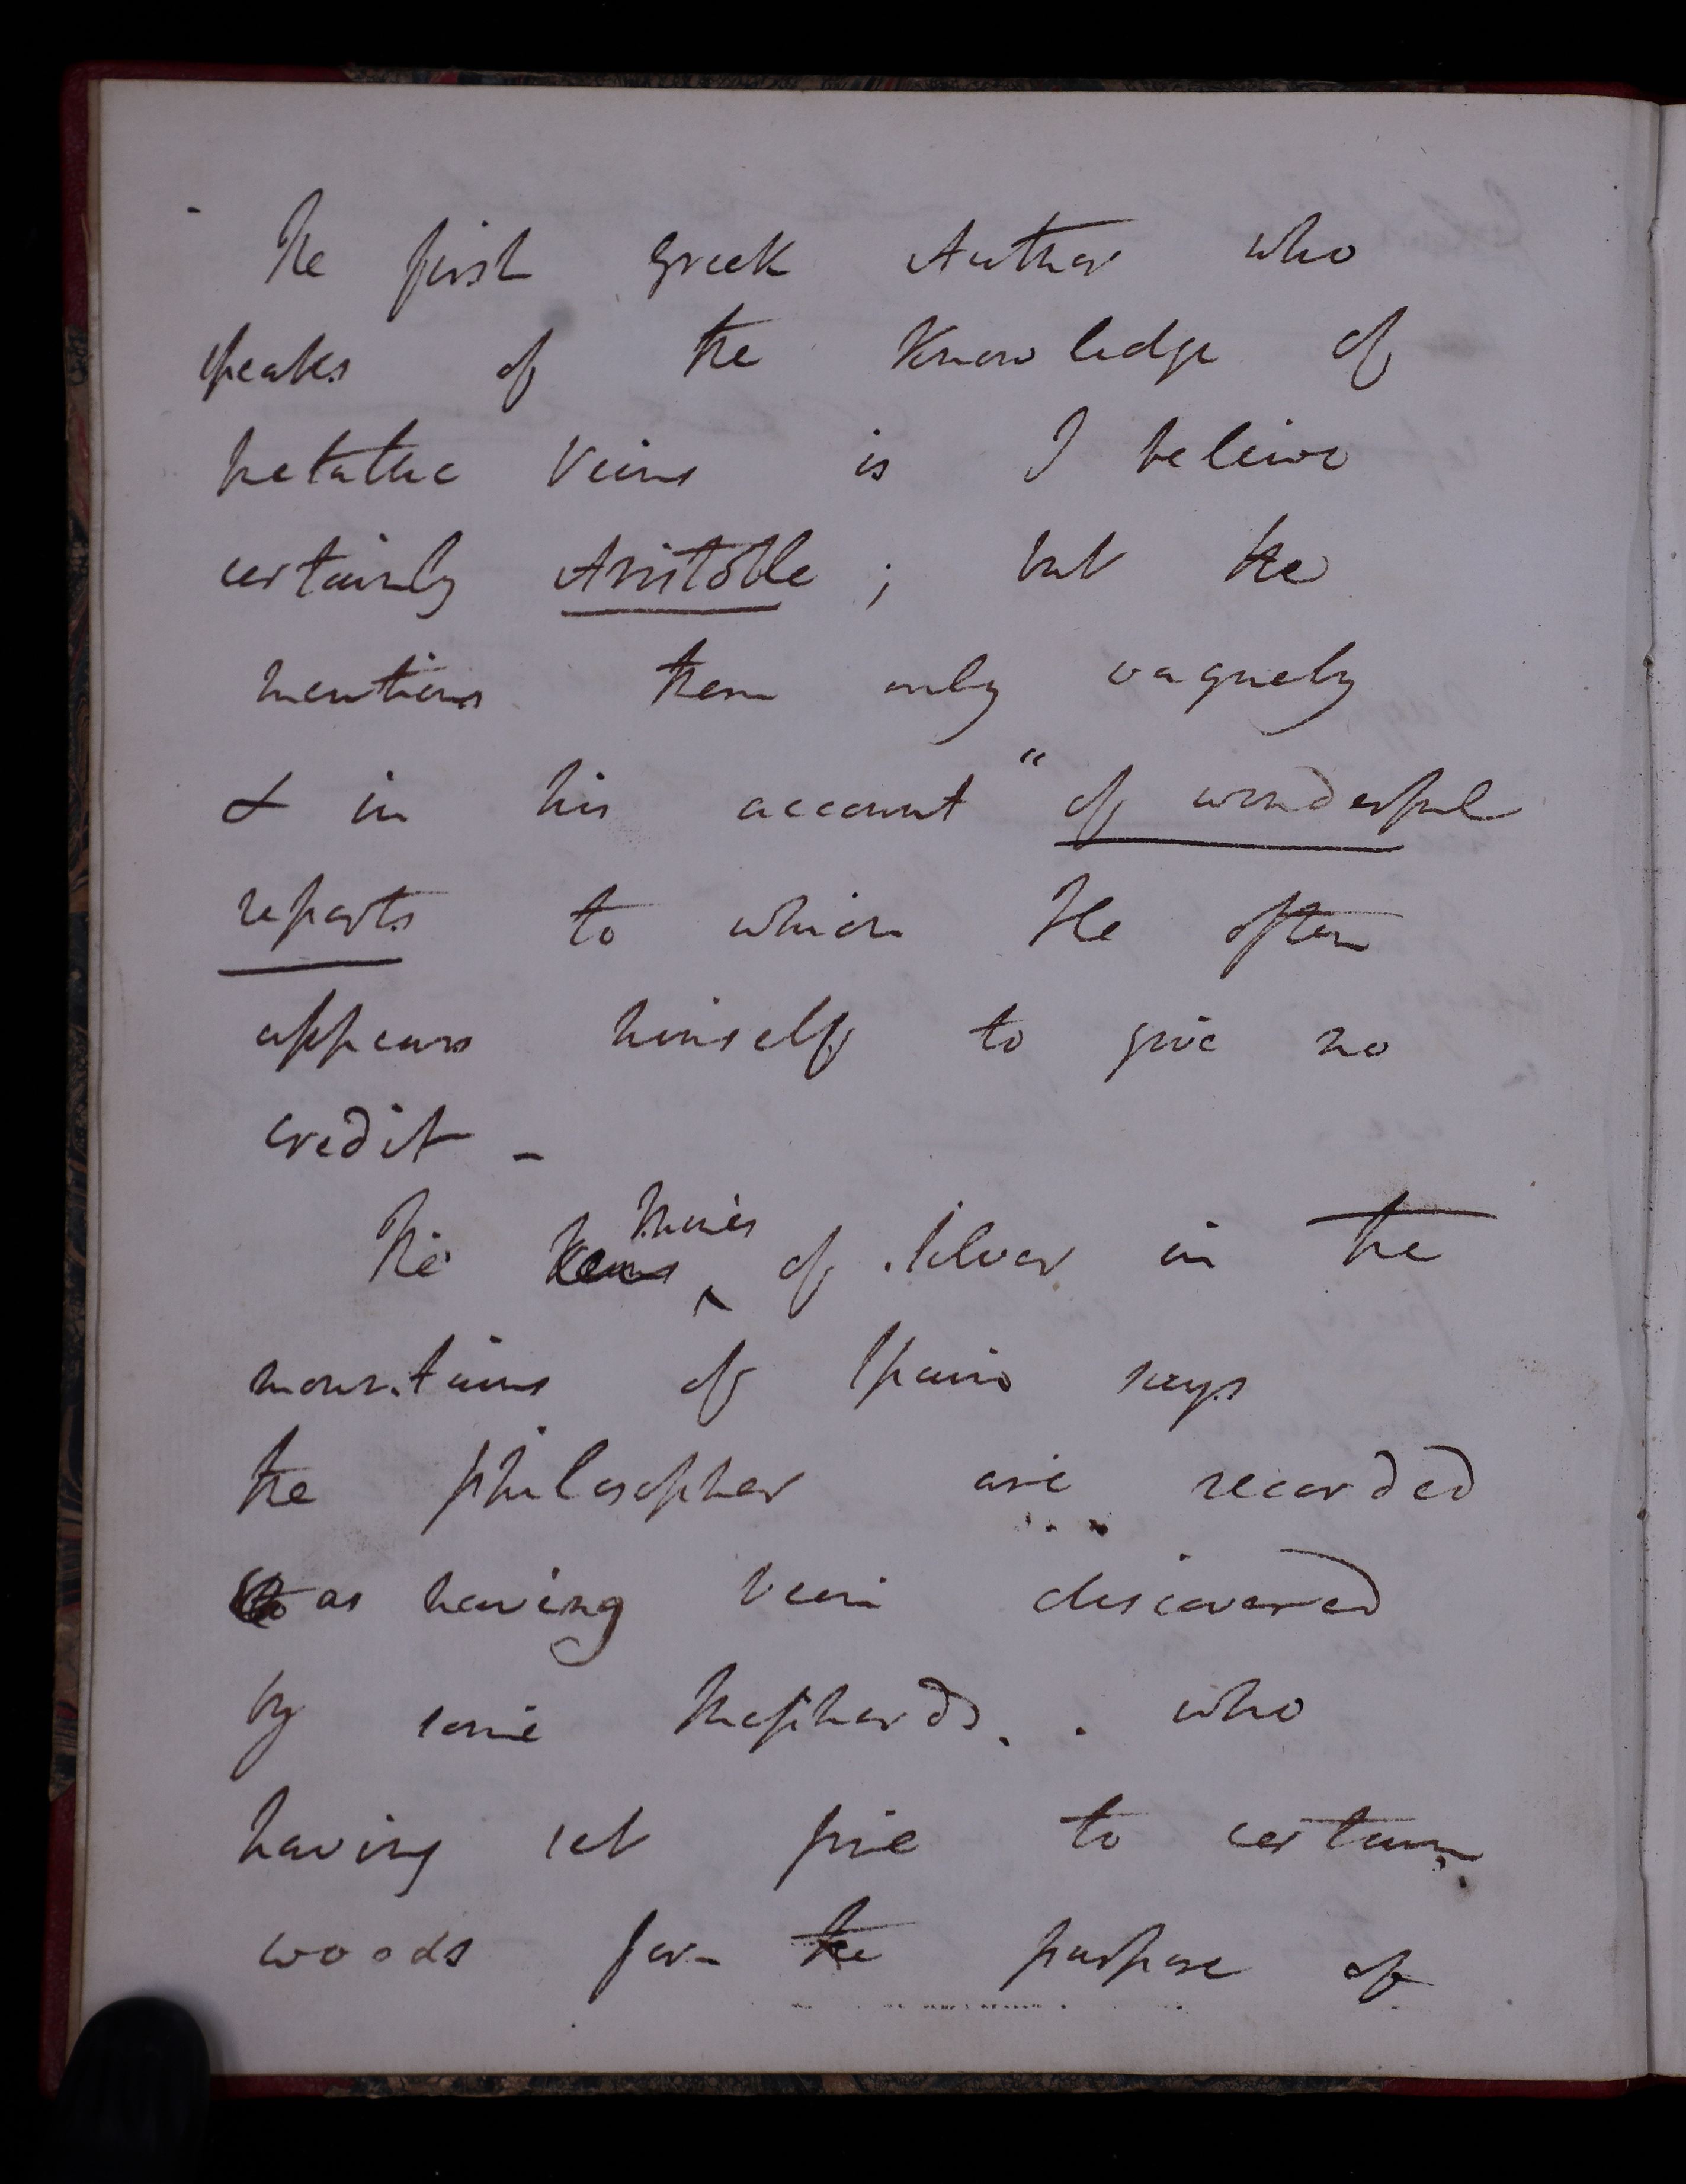 The first Greek Author who
speaks of the Knowledge of
Metallic Veins is I believe
certainly Aristotle ; but he
mentions them only vaguely
& in his account " of wonderful
reports to which He often
appears himself to give no
credit -
The Veins Mines of Silver in the
mountains of Spain says
the philosopher are recorded
as having been discovered
by some Shepherds . who
having set fire to certain
woods for the purpose of